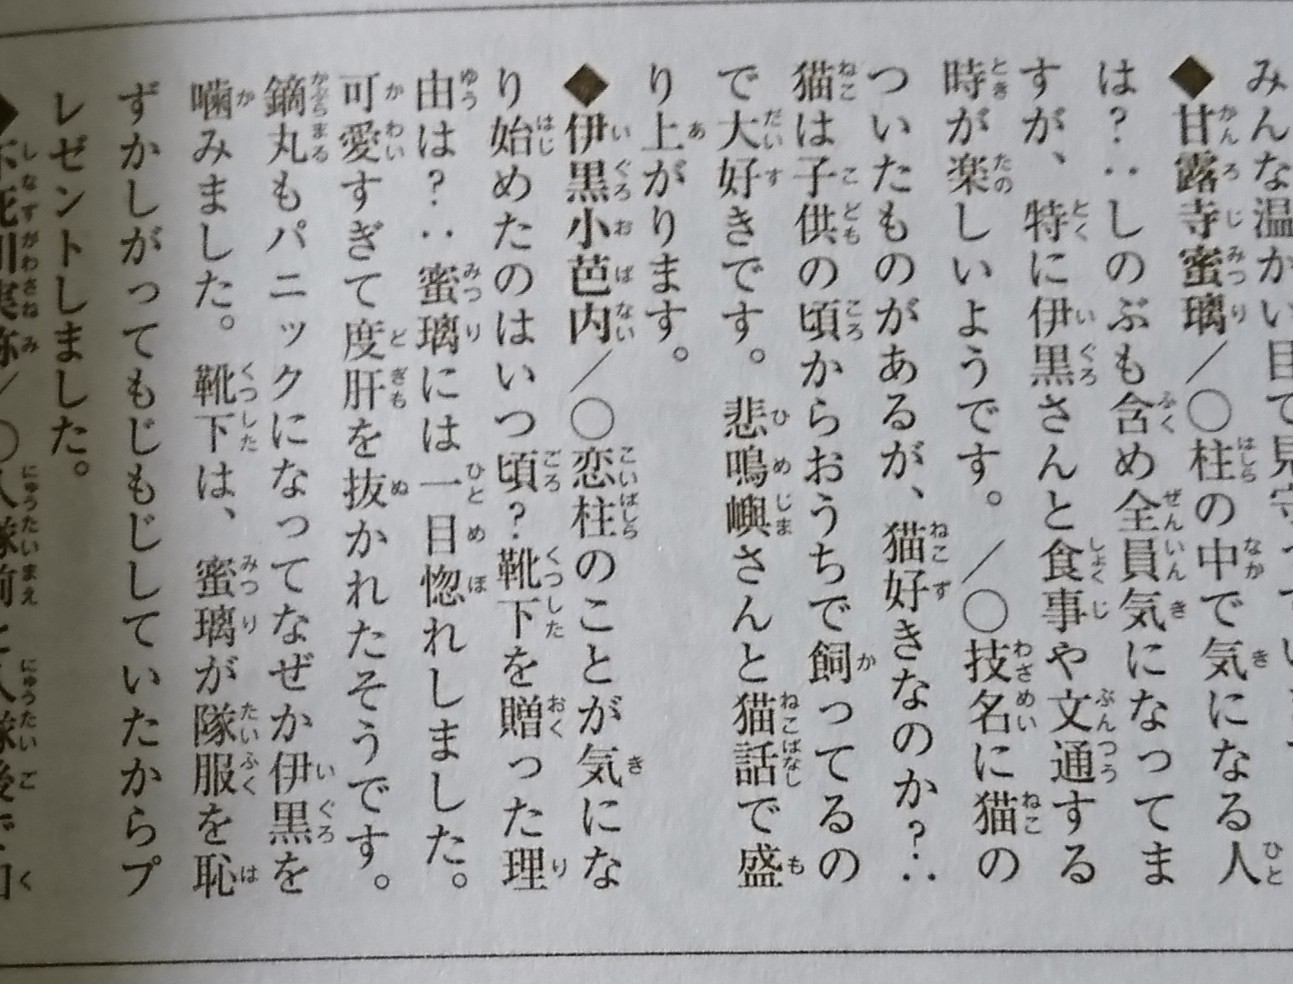 みんな温かい目で見守って
◆甘露寺蜜璃／○柱の中で気になる人
は？‥しのぶも含め全員気になってま
すが、特に伊黒さんと食事や文通する
時が楽しいようです。／○技名に猫の
ついたものがあるが、猫好きなのか？‥
猫は子供の頃からおうちで飼ってるの
で大好きです。悲鳴嶼さんと猫話で盛
り上がります。
◆伊黒小芭内／○恋柱のことが気にな
り始めたのはいつ頃？靴下を贈った理
由は？‥蜜璃には一目惚れしました。
可愛すぎて度肝を抜かれたそうです。
鏑丸もパニックになってなぜか伊黒を
噛みました。靴下は、蜜璃が隊服を恥
ずかしがってもじもじしていたからプ
レゼントしました。
◆不死川実弥／○入隊前と入隊後で